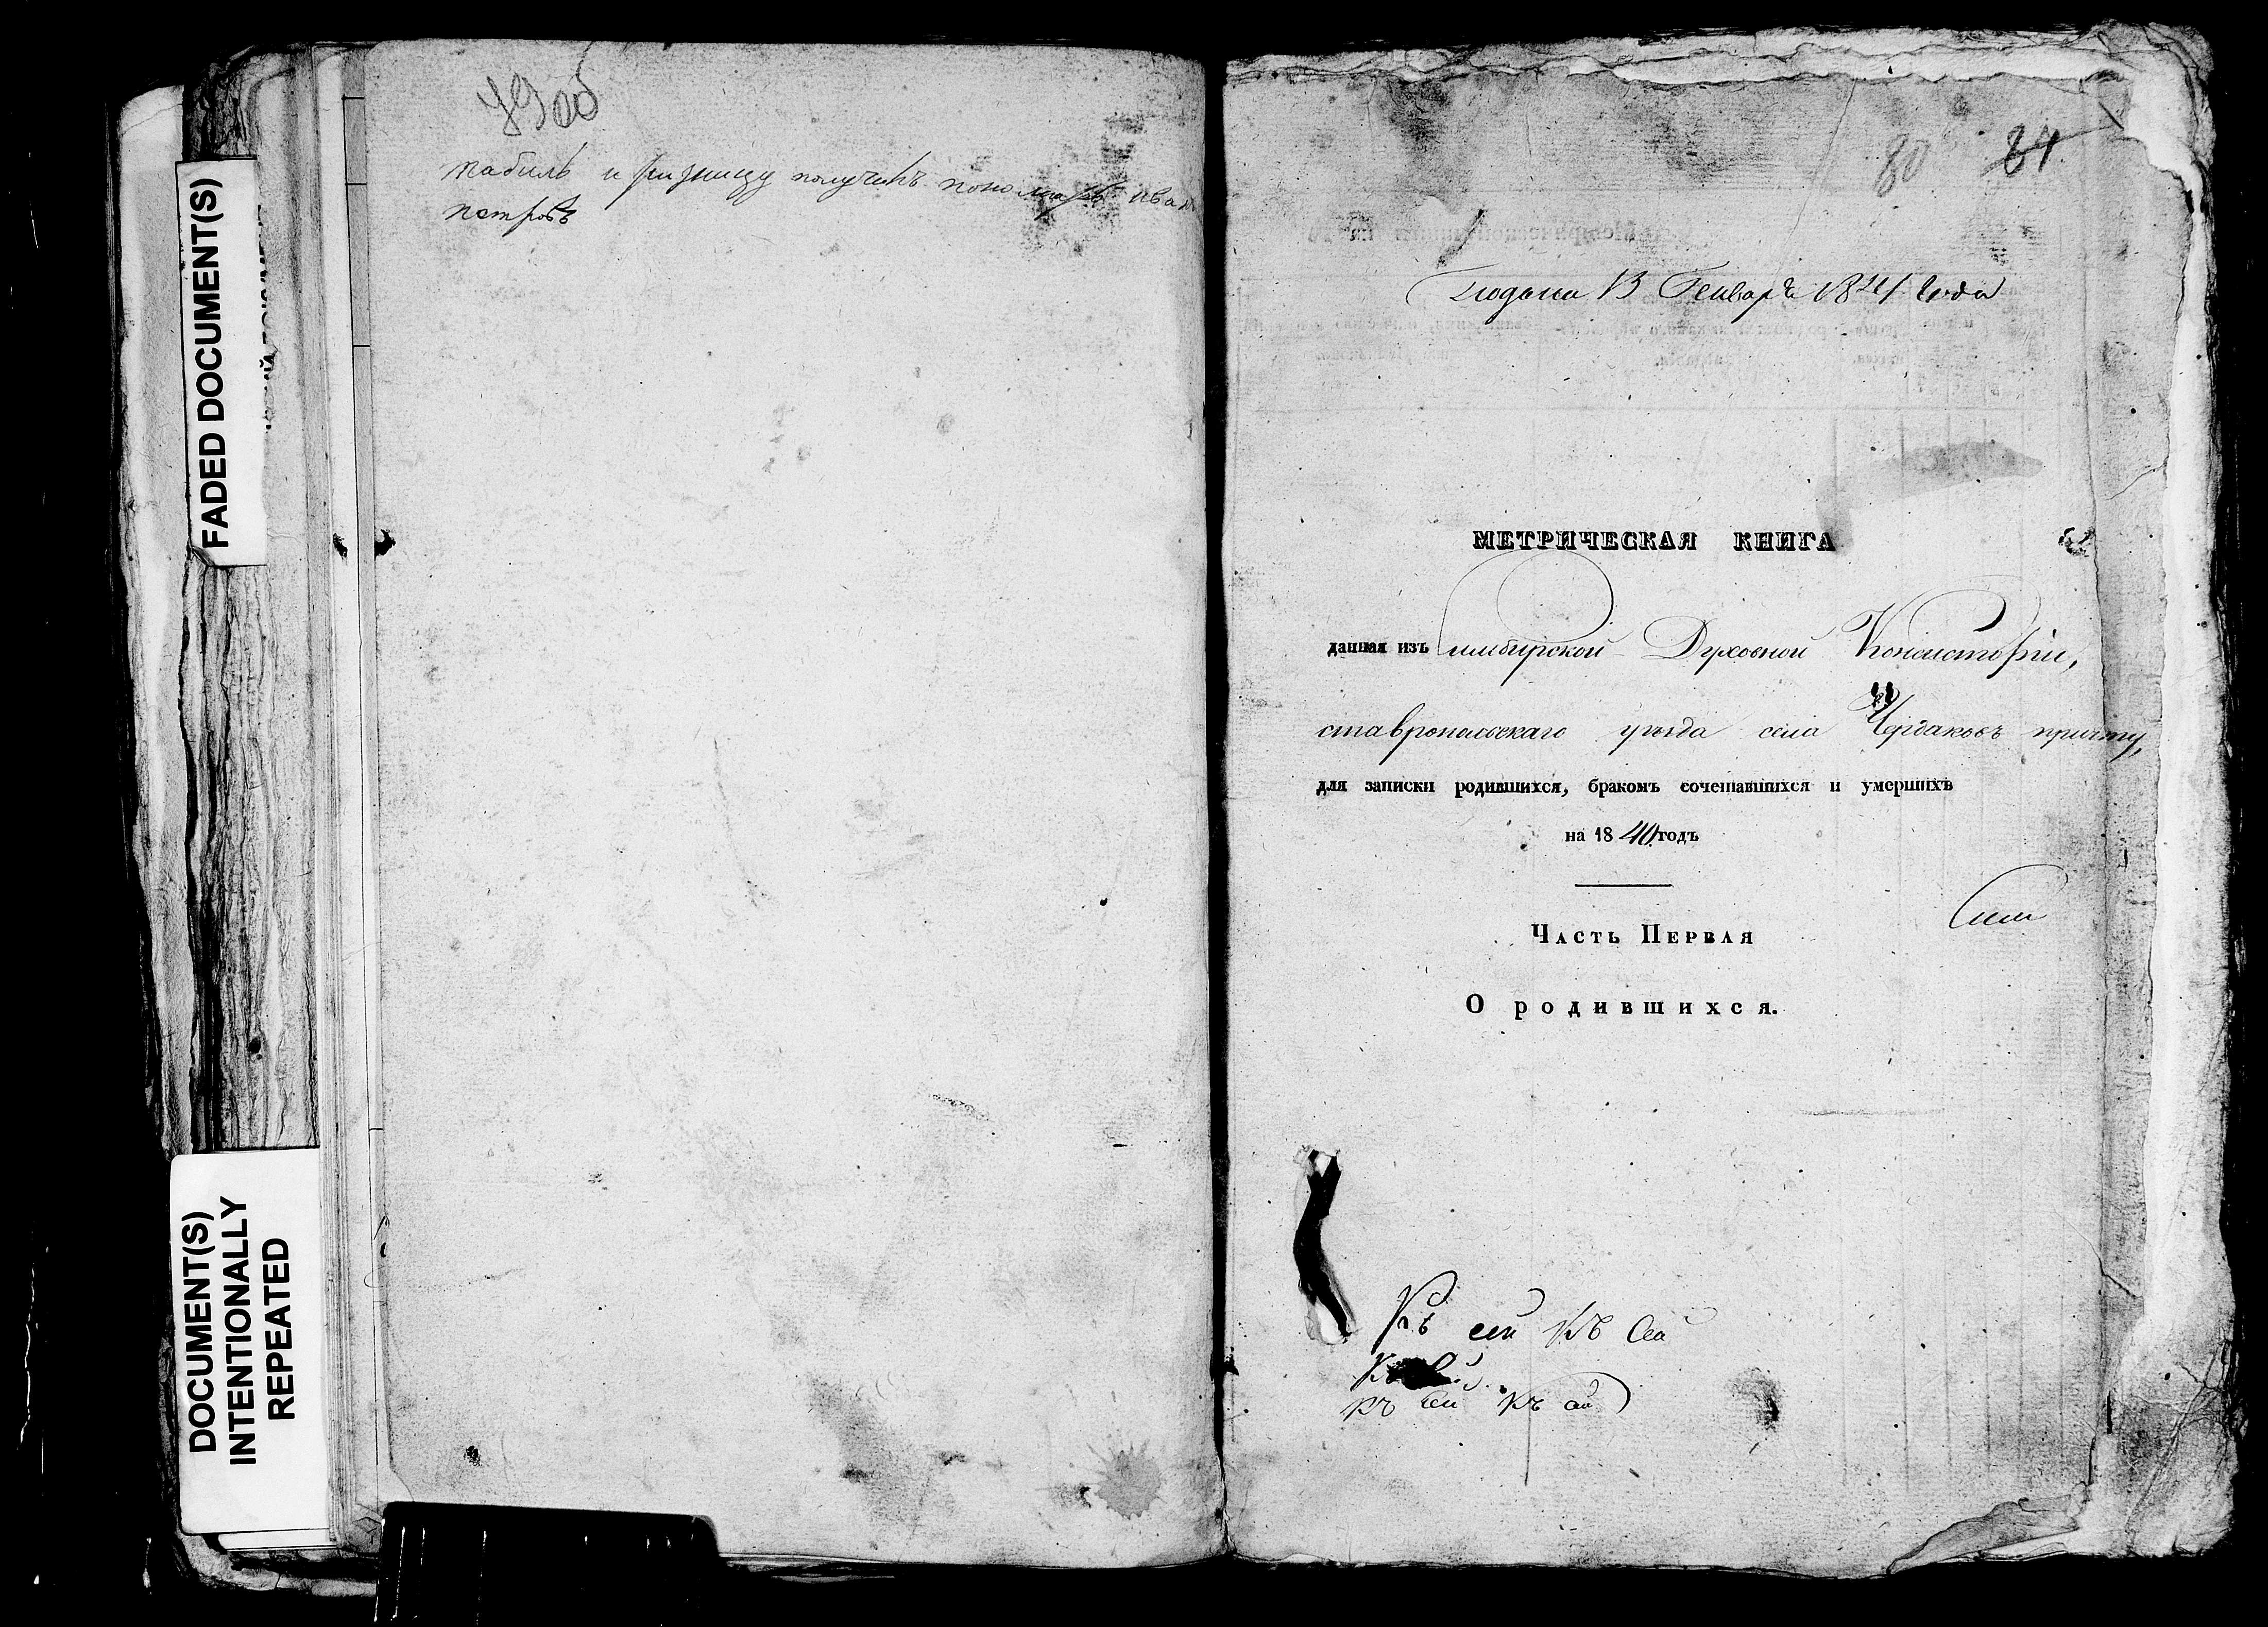 FADED DOCUMENT(S)
DOCUMENT(S)
INTENTIONALLY
REPEATED
79об
табиль и ризницу получилъ пономарь Иван
петровъ
80 81
Подана 13 Генваря 1841 года
МЕТРИЧЕСКАЯ КНИГА
данная изъ симбирской Духовной Консисторіи,
ставропольскаго уезда села Чердаковъ причту,
для записки родившихся, бракомъ сочетавшихся и умершихъ
на 1840 годъ
Сим
Часть Первая
О родившихся.
Къ сей къ сей
къ сей къ сей